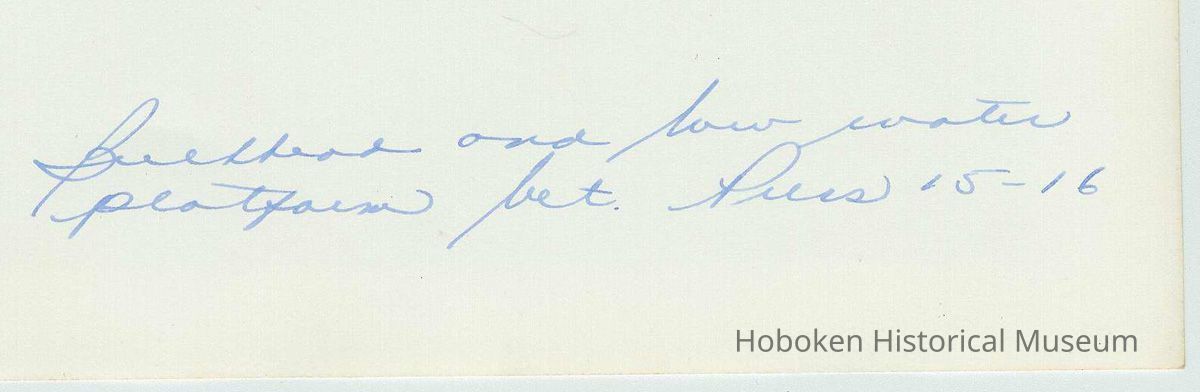 Bulkhead and low water
platform bet. Piers 15-16
Hoboken Historical Museum